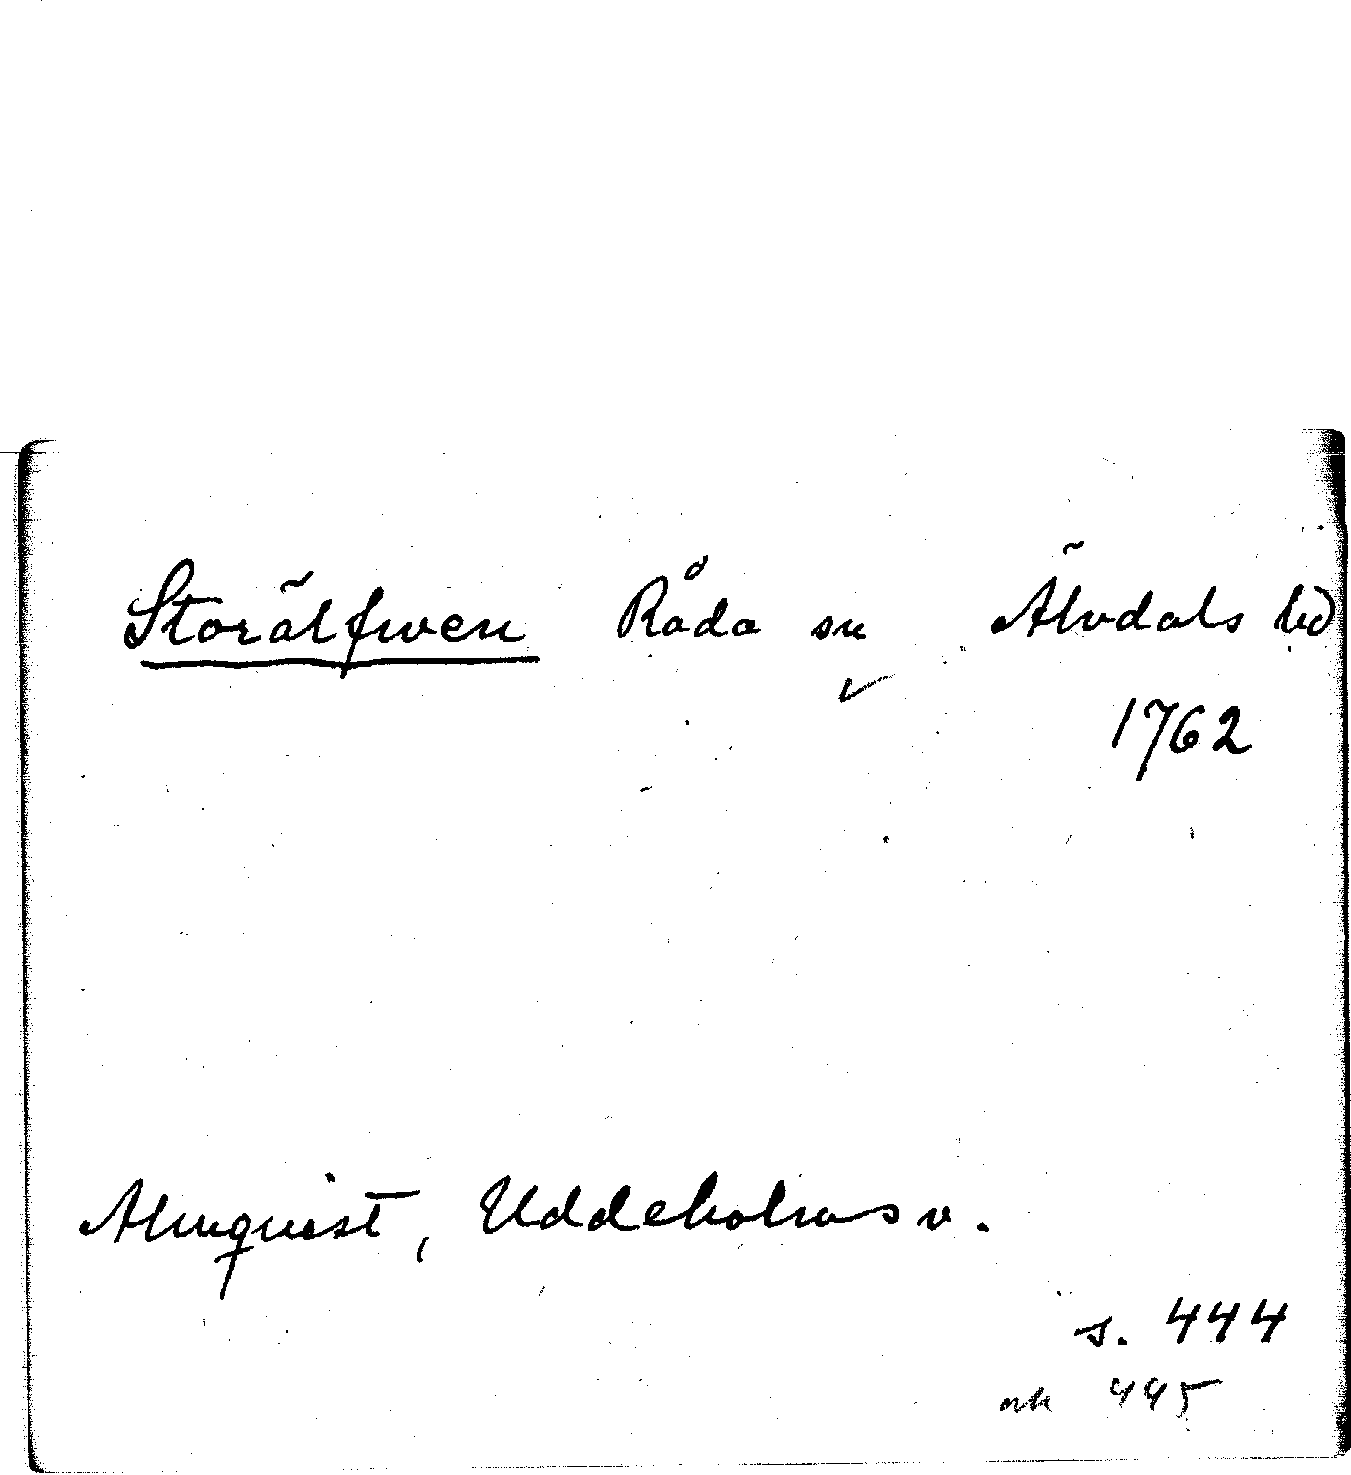 Storälfwen Råda sn Älvdals hd
1762
Almquist, Uddeholms v.
s. 444
och 445